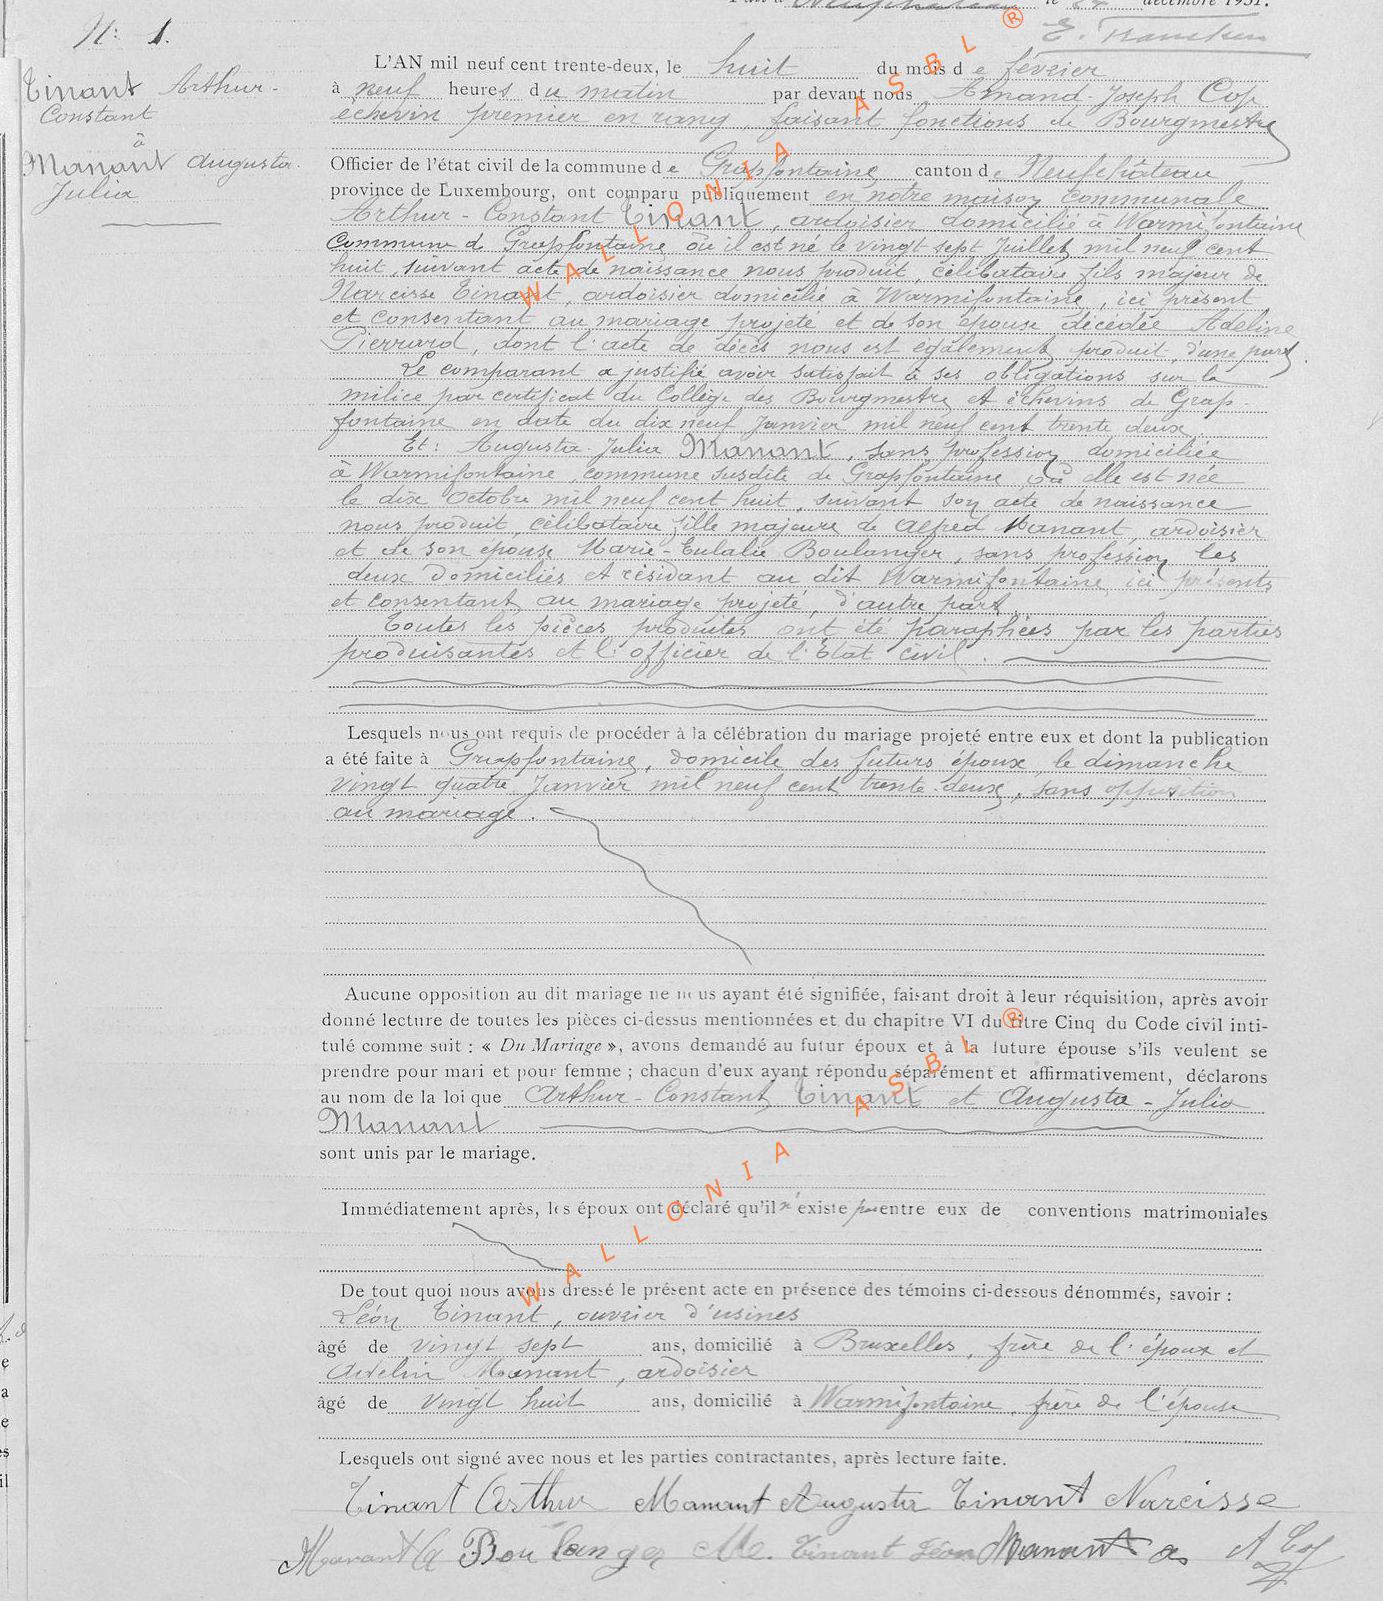 décembre 1931.
E. Francken
N° 1.
Tinant Arthur-
Constant
à
Manant Augusta
Julia
L'AN mil neuf cent trente-deux, le huit du mois de février
à neuf heures du matin par devant nous Amand-Joseph Cop
échevin premier en rang, faisant fonctions de Bourgmestre
Officier de l'état civil de la commune de Grapfontaine canton de Neufchâteau
province de Luxembourg, ont comparu publiquement en notre maison communale
Arthur-Constant Tinant, ardoisier domicilié à Warmifontaine
commune de Grapfontaine où il est né le vingt sept Juillet mil neuf cent
huit, suivant acte de naissance nous produit, célibataire fils majeur de
Narcisse Tinant, ardoisier domicilié à Warmifontaine, ici présent
et consentant au mariage projeté et de son épouse décédée Adeline
Pierrard, dont l'acte de décès nous est également produit, d'une part.
Le comparant a justifié avoir satisfait à ses obligations sur la
milice par certificat du Collège des Bourgmestre et échevins de Grap-
fontaine en date du dix neuf Janvier mil neuf cent trente deux
Et: Augusta Julia Manant, sans profession domiciliée
à Warmifontaine, commune susdite de Grapfontaine, où elle est née
le dix Octobre mil neuf cent huit, suivant son acte de naissance
nous produit, célibataire, fille majeure de Alfred Manant, ardoisier
et de son épouse Marie-Eulalie Boulanger, sans profession les
deux domiciliés et résidant au dit Warmifontaine, ici présents
et consentant au mariage projeté, d'autre part.
Toutes les pièces produites ont été paraphées par les parties
produisantes et l'officier de l'Etat civil.
Lesquels nous ont requis de procéder à la célébration du mariage projeté entre eux et dont la publication
a été faite à Grapfontaine, domicile des futurs époux, le dimanche
vingt quatre Janvier mil neuf cent trente-deux, sans opposition
au mariage.
Aucune opposition au dit mariage ne nous ayant été signifiée, faisant droit à leur réquisition, après avoir
donné lecture de toutes les pièces ci-dessus mentionnées et du chapitre VI du titre Cinq du Code civil inti-
tulé comme suit : « Du Mariage », avons demandé au futur époux et à la future épouse s'ils veulent se
prendre pour mari et pour femme ; chacun d'eux ayant répondu séparément et affirmativement, déclarons
au nom de la loi que Arthur-Constant Tinant et Augusta-Julia
Manant
sont unis par le mariage.
Immédiatement après, les époux ont déclaré qu'il n'existe pas entre eux de conventions matrimoniales
De tout quoi nous avons dressé le présent acte en présence des témoins ci-dessous dénommés, savoir :
Léon Tinant, ouvrier d'usines
âgé de vingt sept ans, domicilié à Bruxelles, frère de l'époux et
Adelin Manant, ardoisier
âgé de vingt huit ans, domicilié à Warmifontaine, frère de l'épouse
Lesquels ont signé avec nous et les parties contractantes, après lecture faite.
Tinant Arthur Manant Augusta Tinant Narcisse
Manant Boulanger Me. Tinant Léon Manant A Cop
WALLONIA ASBL ®
WALLONIA ASBL ®